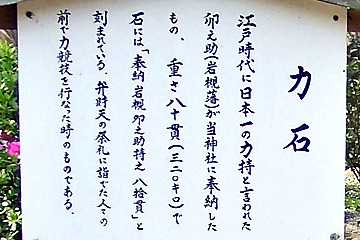 力石
江戸時代に日本一の力持と言われた
卯之助(岩槻藩)が当神社に奉納した
もの、重さ八十貫(三二〇キロ)で
石には、「奉納 岩槻 卯之助持之 八拾貫」と
刻まれている。弁財天の祭礼に詣でた人々の
前で力競技を行なった時のものである。